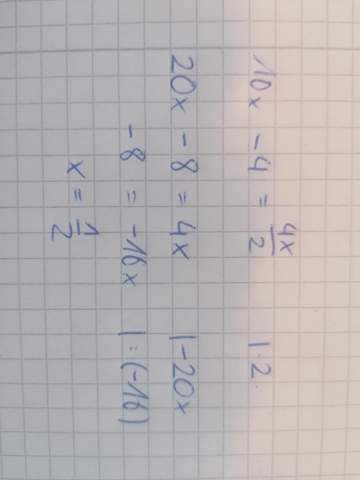 10x - 4 = 4x/2 | · 2
20x - 8 = 4x | -20x
-8 = -16x | : (-16)
x = 1/2